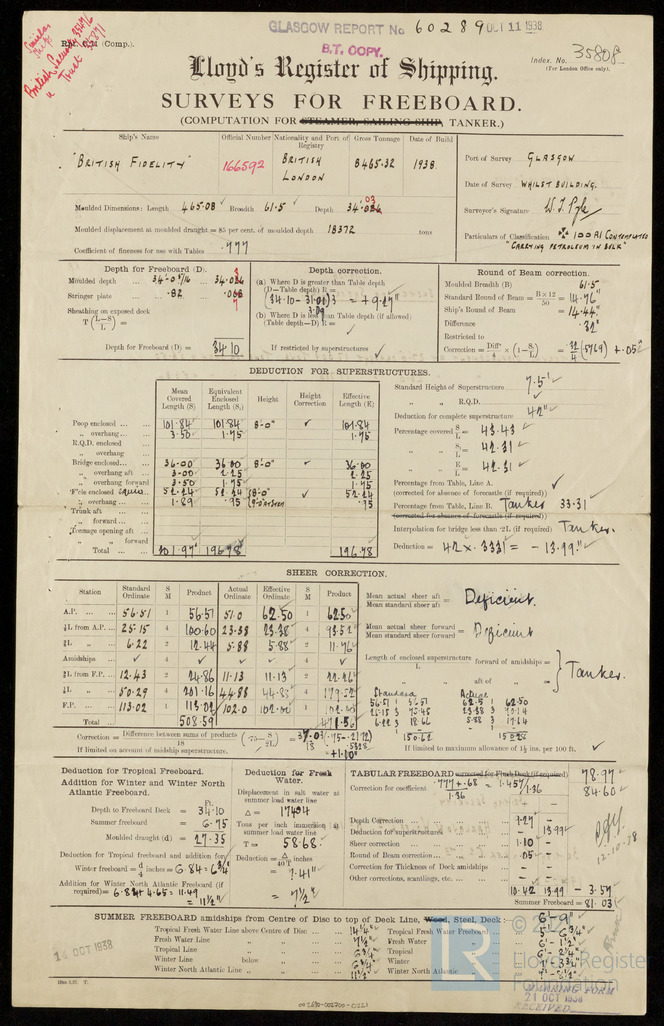 GLASGOW REPORT No 60289 OCT 11 1938
B.T. COPY.
(Comp.).
Similar
Ships
British Security 35476
Trust 35871
Lloyd's Register of Shipping.
Index. No. 35808
(For London Office only).
SURVEYS FOR FREEBOARD.
(COMPUTATION FOR STEAMER, SAILING SHIP, TANKER.)
Ship's Name Official Number Nationality and Port of Registry Gross Tonnage Date of Build
"BRITISH FIDELITY" 166592 BRITISH LONDON 8465.32 1938
Port of Survey GLASGOW
Date of Survey WHILST BUILDING.
Surveyor's Signature
Particulars of Classification 100 A1 Contemplated
"CARRYING PETROLEUM IN BULK"
Moulded Dimensions: Length 465.08 Breadth 61.5 Depth
Moulded displacement at moulded draught = 85 per cent. of moulded depth 18372 tons
Coefficient of fineness for use with Tables .777
Depth for Freeboard (D).
Moulded depth
Stringer plate .82
Sheathing on exposed deck
T (L-S/L) =
Depth for Freeboard (D) = 34.10
Depth correction.
(a) Where D is greater than Table depth
(D—Table depth) R =
(34.10 - 31.00) 3 = + 9.27"
(b) Where D is less than Table depth (if allowed)
(Table depth—D) R =
If restricted by superstructures
Round of Beam correction.
Moulded Breadth (B) 61.5
Standard Round of Beam = B×12/50 = 14.76"
Ship's Round of Beam = 14.44"
Difference .32"
Restricted to
Correction = Diff/4 × (1-S/L) = .32/4 (.5769) + .05"
DEDUCTION FOR SUPERSTRUCTURES.
Mean Covered Length (S) Equivalent Enclosed Length (S1) Height Height Correction Effective Length (E)
Poop enclosed 101.84 101.84 8'-0" 101.84
„ overhang 3.50 1.75 1.75
R.Q.D. enclosed
„ overhang
Bridge enclosed 36.00 36.00 8'-0" 36.00
„ overhang aft 3.00 2.25 2.25
„ overhang forward 3.50 1.75 1.75
F'cle enclosed 52.24 52.24 52.24
„ overhang 1.89 .95 .95
Trunk aft
„ forward
Tonnage opening aft
„ „ forward
Total 201.97 196.78 196.78
Standard Height of Superstructure 7.5'
„ „ R.Q.D.
Deduction for complete superstructure 42"
Percentage covered S/L = 43.43
„ S1/L = 42.31
„ E/L = 42.31
Percentage from Table, Line A.
(corrected for absence of forecastle (if required))
Percentage from Table, Line B. Tanker 33.31
(corrected for absence of forecastle (if required))
Interpolation for bridge less than .2L (if required) Tanker.
Deduction = 42 × .3331 = - 13.99"
SHEER CORRECTION.
Station Standard Ordinate S M Product Actual Ordinate Effective Ordinate S M Product
A.P. 56.51 1 56.51 51.0 62.50 1 62.50
⅙L from A.P. 25.15 4 100.60 23.38 23.38 4 93.52
⅓L „ 6.22 2 12.44 5.88 5.88 2 11.76
Amidships 4 4
⅓L from F.P. 12.43 2 24.86 11.13 11.13 2 22.26
⅙L „ 50.29 4 201.16 44.88 44.88 4 179.52
F.P. 113.02 1 113.02 102.0 102.00 1 102.00
Total 508.59 471.56
Mean actual sheer aft / Mean standard sheer aft = Deficient.
Mean actual sheer forward / Mean standard sheer forward = Deficient
Length of enclosed superstructure forward of amidships / L =
„ „ aft of „ =
Tanker.
Standard Actual
56.51 1 56.51 62.5 1 62.50
25.15 3 75.45 23.38 3 70.14
6.22 3 18.66 5.88 3 17.64
150.62 150.28
Correction = Difference between sums of products / 18 (.75 - S/2L) = 37.03/18 (.75-.2172)
= +1.10"
If limited on account of midship superstructure.
If limited to maximum allowance of 1½ ins. per 100 ft.
Deduction for Tropical Freeboard.
Addition for Winter and Winter North Atlantic Freeboard.
Ft.
Depth to Freeboard Deck = 34.10
Summer freeboard = 6.75
Moulded draught (d) = 27.35
Deduction for Tropical freeboard and addition for
Winter freeboard = d/4 inches = 6.84 = 6¾"
Addition for Winter North Atlantic Freeboard (if
required) = 6.84 + 4.65 = 11.49
= 11½"
Deduction for Fresh Water.
Displacement in salt water at summer load water line
Δ = 17404
Tons per inch immersion at summer load water line
T = 58.68
Deduction = Δ/40T inches
= 7.41"
= 7½"
TABULAR FREEBOARD corrected for Flush Deck (if required) 78.97
Correction for coefficient .777+.68 / 1.36 = 1.457/1.36 84.60
Depth Correction 9.27 -
Deduction for superstructures - 13.99
Sheer correction 1.10 -
Round of Beam correction .05 -
Correction for Thickness of Deck amidships - -
Other corrections, scantlings, etc. - -
10.42 13.99 - 3.57
Summer Freeboard = 81.03
12-10-38
SUMMER FREEBOARD amidships from Centre of Disc to top of Deck Line, Wood, Steel, Deck :— 6'-9"
Tropical Fresh Water Line above Centre of Disc 14¼" Tropical Fresh Water Freeboard 5'-6¾"
Fresh Water Line „ „ 7½" Fresh Water „ 6'-1½"
Tropical Line „ „ 6¾" Tropical „ 6'-2¼"
Winter Line below „ „ 6¾" Winter „ 7'-3¾"
Winter North Atlantic Line „ „ 11½" Winter North Atlantic „ 7'-8½"
14 OCT 1938
© 2021
LR
Lloyd's Register
Foundation
21 OCT 1938
RECEIVED
002690-002700-0221